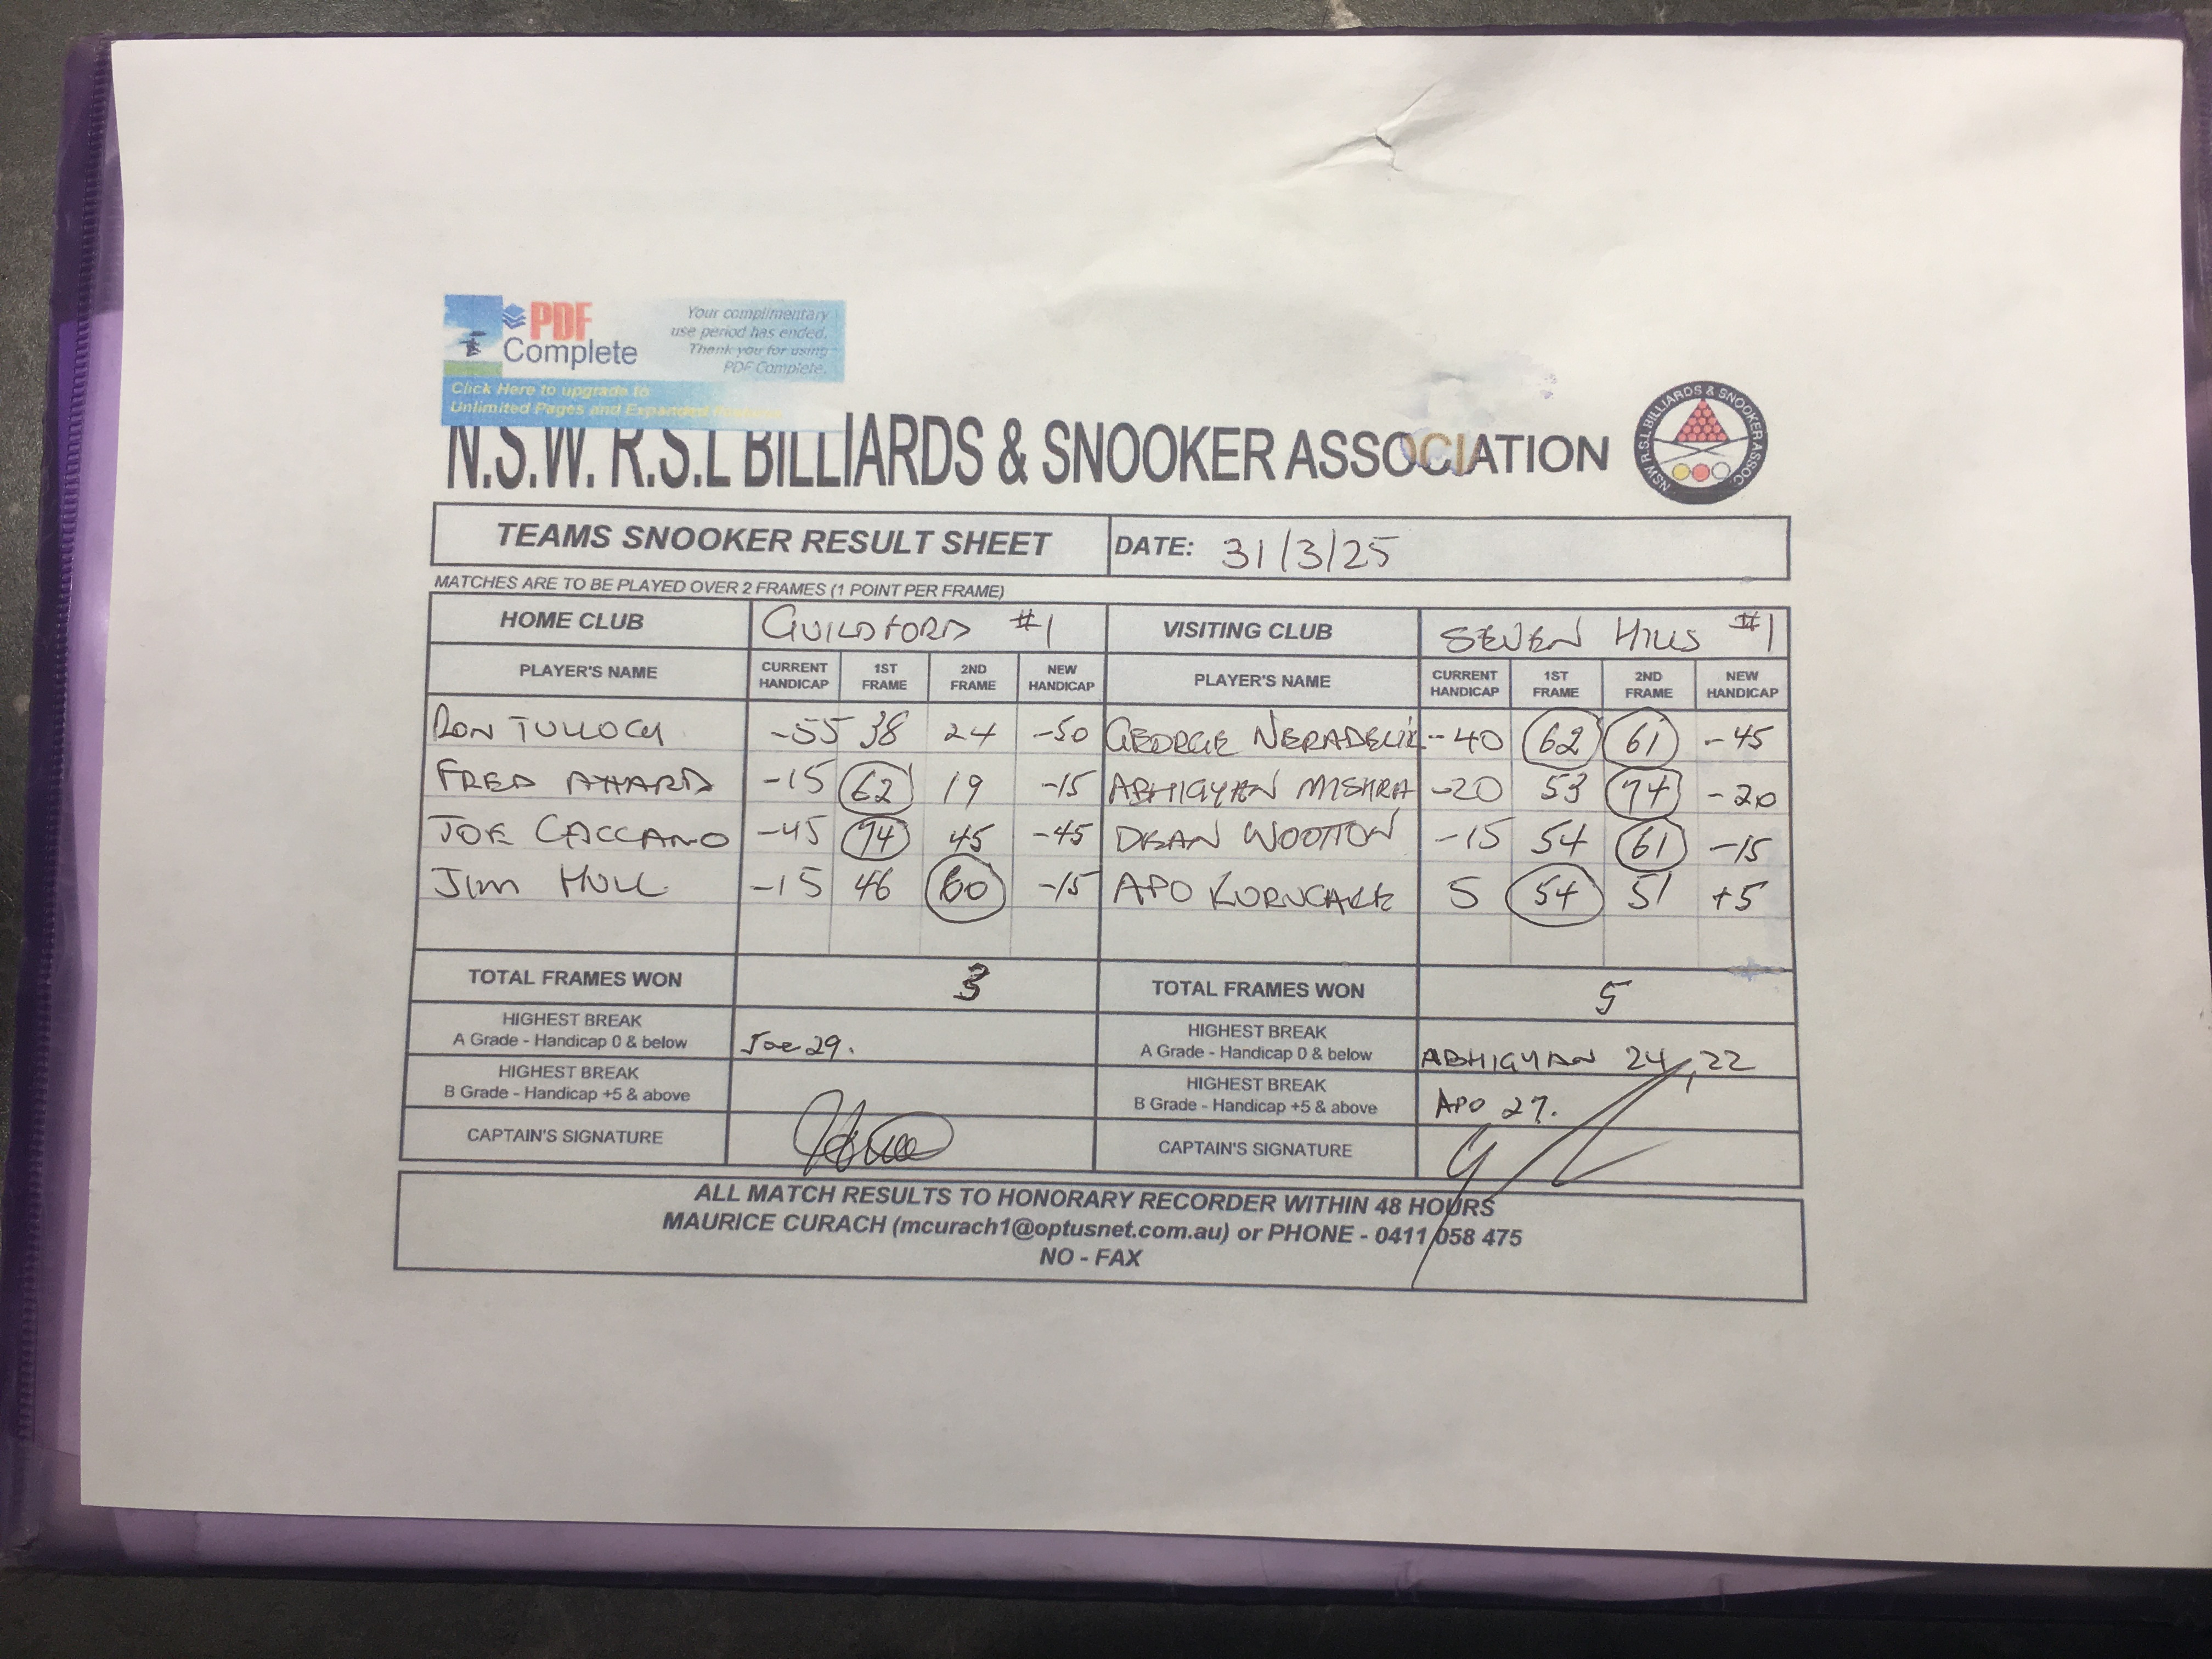 PDF Complete
Your complimentary
use period has ended.
Thank you for using
PDF Complete.
Click Here to upgrade to
Unlimited Pages and Expanded
N.S.W. R.S.L BILLIARDS & SNOOKER ASSOCIATION
NSW R.S.L BILLIARDS & SNOOKER ASSOC.
TEAMS SNOOKER RESULT SHEET DATE: 31/3/25
MATCHES ARE TO BE PLAYED OVER 2 FRAMES (1 POINT PER FRAME)
HOME CLUB GUILDFORD #1 VISITING CLUB SEVEN HILLS #1
PLAYER'S NAME CURRENT HANDICAP 1ST FRAME 2ND FRAME NEW HANDICAP PLAYER'S NAME CURRENT HANDICAP 1ST FRAME 2ND FRAME NEW HANDICAP
RON TULLOCH -55 38 24 -50 GEORGE NERADELIK -40 62 61 -45
FRED -15 62 19 -15 ABHIGYAN MISHRA -20 53 74 -20
JOE CACCAMO -45 74 45 -45 DEAN WOOTTON -15 54 61 -15
JIM HULL -15 46 60 -15 APO 5 54 51 +5
TOTAL FRAMES WON 3 TOTAL FRAMES WON 5
HIGHEST BREAK A Grade - Handicap 0 & below Joe 29. HIGHEST BREAK A Grade - Handicap 0 & below ABHIGYAN 24, 22
HIGHEST BREAK B Grade - Handicap +5 & above HIGHEST BREAK B Grade - Handicap +5 & above APO 27.
CAPTAIN'S SIGNATURE CAPTAIN'S SIGNATURE
ALL MATCH RESULTS TO HONORARY RECORDER WITHIN 48 HOURS
MAURICE CURACH (mcurach1@optusnet.com.au) or PHONE - 0411 058 475
NO - FAX